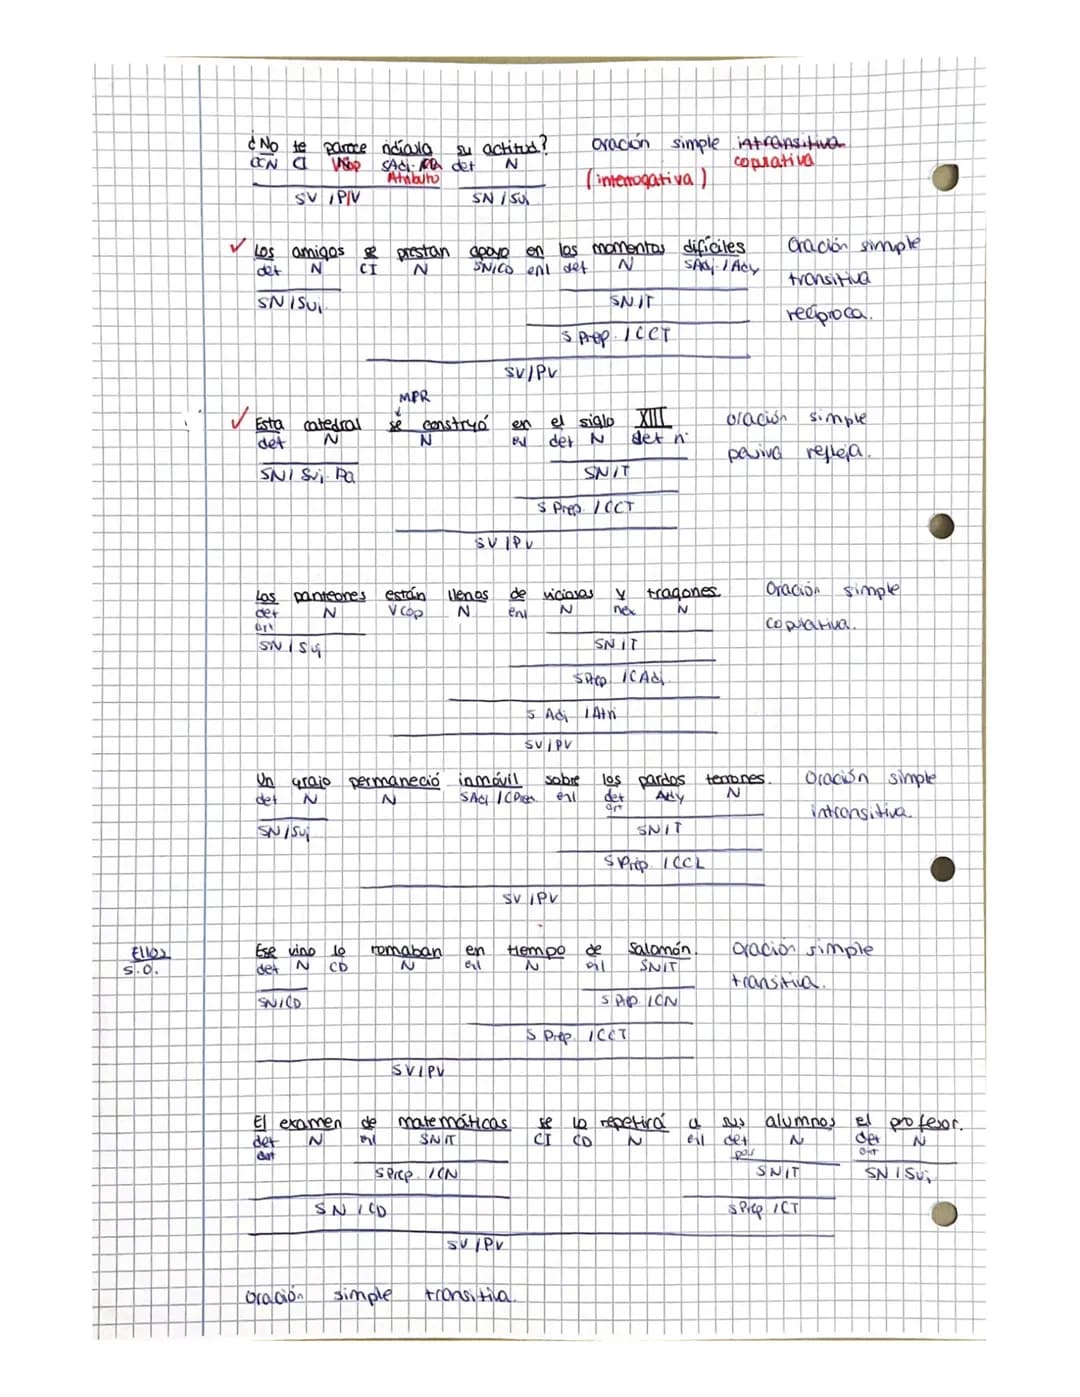 ¿No te parece ridícula su actitud? Oración simple intransitiva
CCN CI VCop SAdj. det N copulativa
Atributo (interrogativa)
SV / PV SN / Suj
✓ Los amigos se prestan apoyo en los momentos difíciles Oración simple
det N CI N SN/CD enl det N SAdj. / Ady transitiva
SN/Suj. SN/T recíproca.
S Prep. / CCT
SV/PV
MPR
✓ Esta catedral se construyó en el siglo XIII oración simple
det N N enl det N det n. pasiva refleja.
SN/ Suj. Pa SN/T
S Prep. / CCT
SV / PV
Los panteones están llenos de viciosos y tragones. Oración simple
det N V Cop N enl N nex N copulativa.
art
SN / Suj SN / T
SPrep / CAdj.
S Adj / Atri
SV / PV
Un grajo permaneció inmóvil sobre los pardos terrones. Oración simple
det N N SAdj / CPred enl det Ady N intransitiva.
art
SN/Suj SN/T
S Prep. / CCL
SV / PV
Ellos Ese vino lo tomaban en tiempo de Salomón. Oración simple
S.O. det N CD N enl N enl SN/T transitiva.
SN/CD S Prep / CN
S Prep. / CCT
SV/PV
El examen de matemáticas se lo repetirá a sus alumnos el profesor.
det N enl SN/T CI CD N enl det N det N
art pos art
SPrep. / CN SN/T SN / Suj
SN / CD SPrep / CI
SV / PV
Oración simple transitiva.